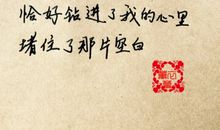 恰好钻进了我的心里
堵住了那片空白